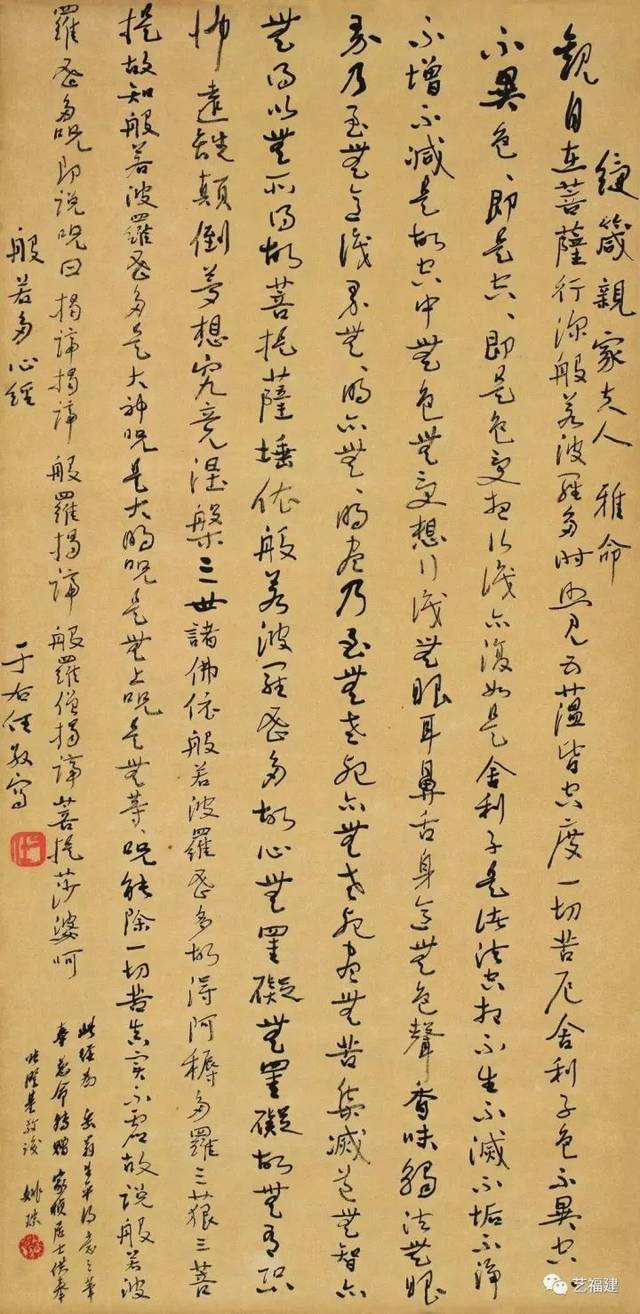 箴親家夫人 雅命
觀自在菩薩行深般若波羅多時照見五蘊皆空度一切苦厄舍利子色不異空
不異色、即是空、即是色受想行識亦復如是舍利子是諸法空相不生不滅不垢不淨
不增不減是故空中無色無受想行識無眼耳鼻舌身意無色聲香味觸法無眼
界乃至無意識界無、明亦無、明盡乃至無老死亦無老死盡無苦集滅道無智亦
無得以無所得故菩提薩埵依般若波羅蜜多故心無罣礙無罣礙故無有恐
怖遠離顛倒夢想究竟涅槃三世諸佛依般若波羅蜜多故得阿耨多羅三藐三菩
提故知般若波羅蜜多是大神咒是大明咒是無上咒是無等、咒能除一切苦真實不虛故說般若波
羅蜜多咒即說咒曰揭諦揭諦 般羅揭諦 般羅僧揭諦菩提莎婆呵
般若多心經 于右任敬寫
此經為 翁生平得意之筆
奉 命轉贈 家順居士供奉
敬識 姚琮
艺福建